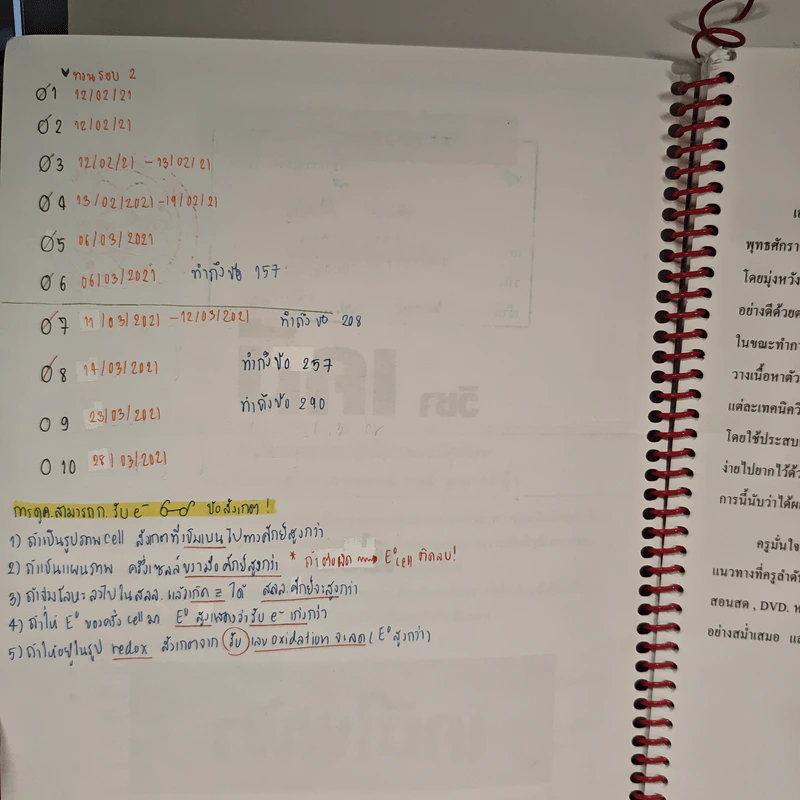 ทวนรอบ 2
1 12/02/21
2 12/02/21
3 12/02/21 - 13/02/21
4 13/02/2021 - 19/02/21
5 06/03/2021
6 06/03/2021 ทำถึงข้อ 157
7 11/03/2021 - 12/03/2021 ทำถึงข้อ 208
8 14/03/2021 ทำถึงข้อ 257
9 23/03/2021 ทำถึงข้อ 290
10 28/03/2021
การดูค.สามารถก.รับ e- ข้อสังเกต!
1) ถ้าเป็นรูปภาพ cell สังเกตที่เข็มเบนไปทางศักย์สูงกว่า
2) ถ้าเป็นแผนภาพ ครึ่งเซลล์ขวามือศักย์สูงกว่า * ถ้าต่อผิด → E°cell ติดลบ!
3) ถ้าจุ่มโลหะลงไปในสลล. แล้วเกิด ได้ สลล.ศักย์จะสูงกว่า
4) ถ้าให้ E° ของครึ่ง cell มา E° สูงแสดงว่ารับ e- เก่งกว่า
5) ถ้าให้อยู่ในรูป redox สังเกตจาก รับ เลข oxidation จะลด (E° สูงกว่า)
พุทธศักรา
โดยมุ่งหวัง
อย่างดีด้วยต
ในขณะทำกา
วางเนื้อหาตัว
แต่ละเทคนิควิ
โดยใช้ประสบ
ง่ายไปยากไว้ด้ว
การนี้นับว่าได้ผ
ครูมั่นใจ
แนวทางที่ครูลำดับ
สอนสด, DVD. ห
อย่างสม่ำเสมอ แล